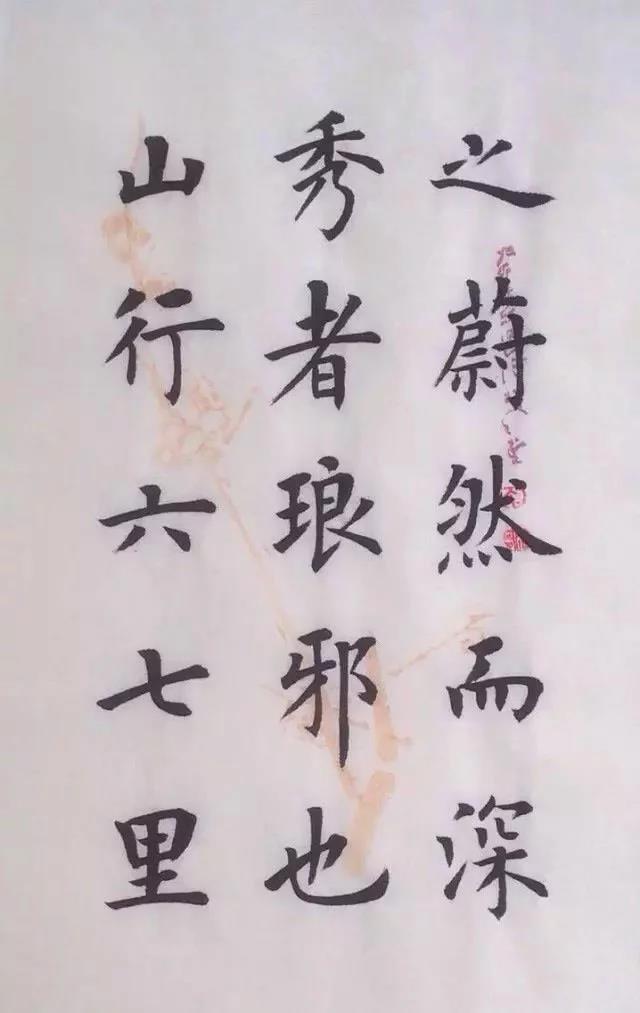 之蔚然而深
秀者琅邪也
山行六七里